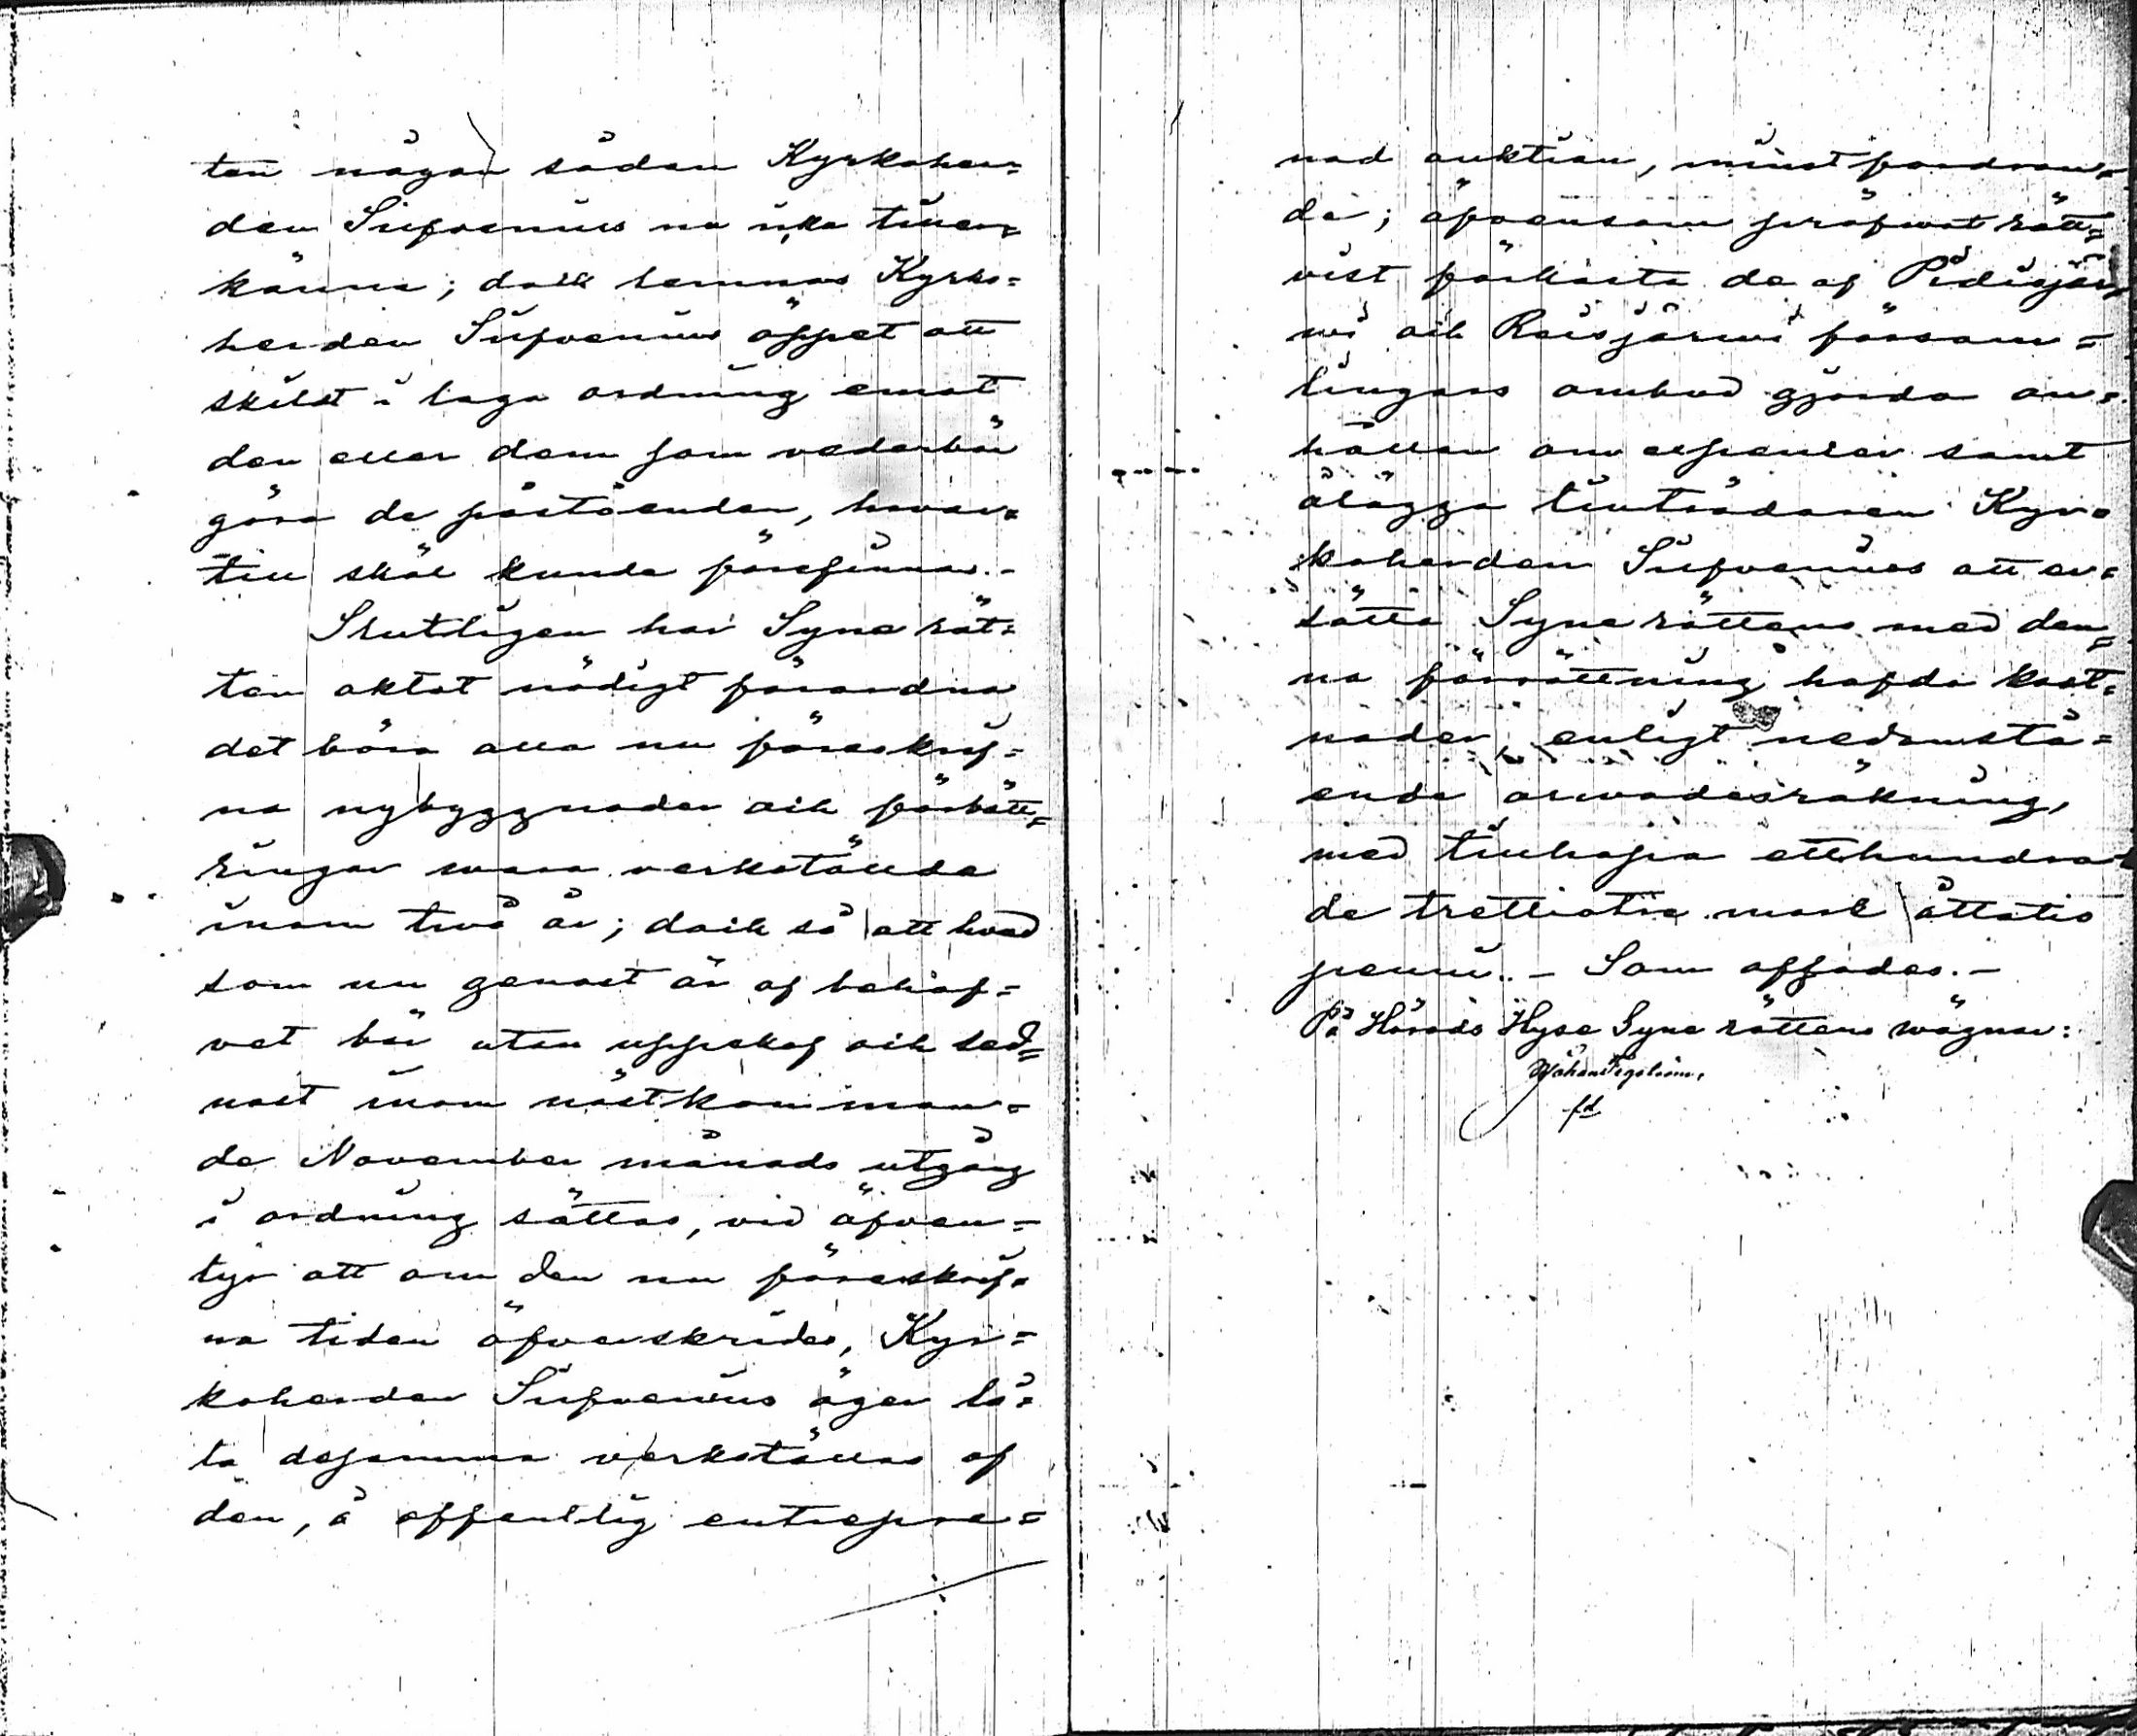 ten någon sådan Kyrkoher=
den Sirfvenius nu icke tiller=
känna; dock lemnas Kyrko=
herden Sirfvenius öppet att
skildt i laga ordning emot
den eller dem som vederbör
göra de påståenden, hvar=
till skäl kunde förefinnas.-
Slutligen har Syne rät=
ten aktat nödigt förordna
det böra alla nu föreskrif=
na nybyggnader och förbätt=
ringar vara verkstälda
inom två år; dock så att hvad
som nu genast är af behöf=
vet bör utan uppskof och sed=
nast inom nästkomman=
de November månads utgång
i ordning sättas, vid äfven=
tyr att om den nu föreskrif=
na tiden öfverskrides, Kyr=
koherden Sirfvenius äger lå=
ta desamma verkställas af
den, å offentlig entrepre=
nad auktion, minst fordran=
de; äfvensom pröfvat rätt=
vist förkasta de af Pidisjär=
wi och Reisjärwi försam=
lingars ombud gjorda an=
hållan om expenser samt
ålägga tillträdaren Kyr=
koherden Sirfvenius att er=
sätta Syne rättens med den=
na förrättning hafda kost=
nader enligt nedanstå=
ende arvodesräkning,
med tillhopa etthundra=
de trettiotre mark åttatio
penni.- Som afsades.-
På Härads Hyse Syne rättens wägnar:
Johan Tegström,